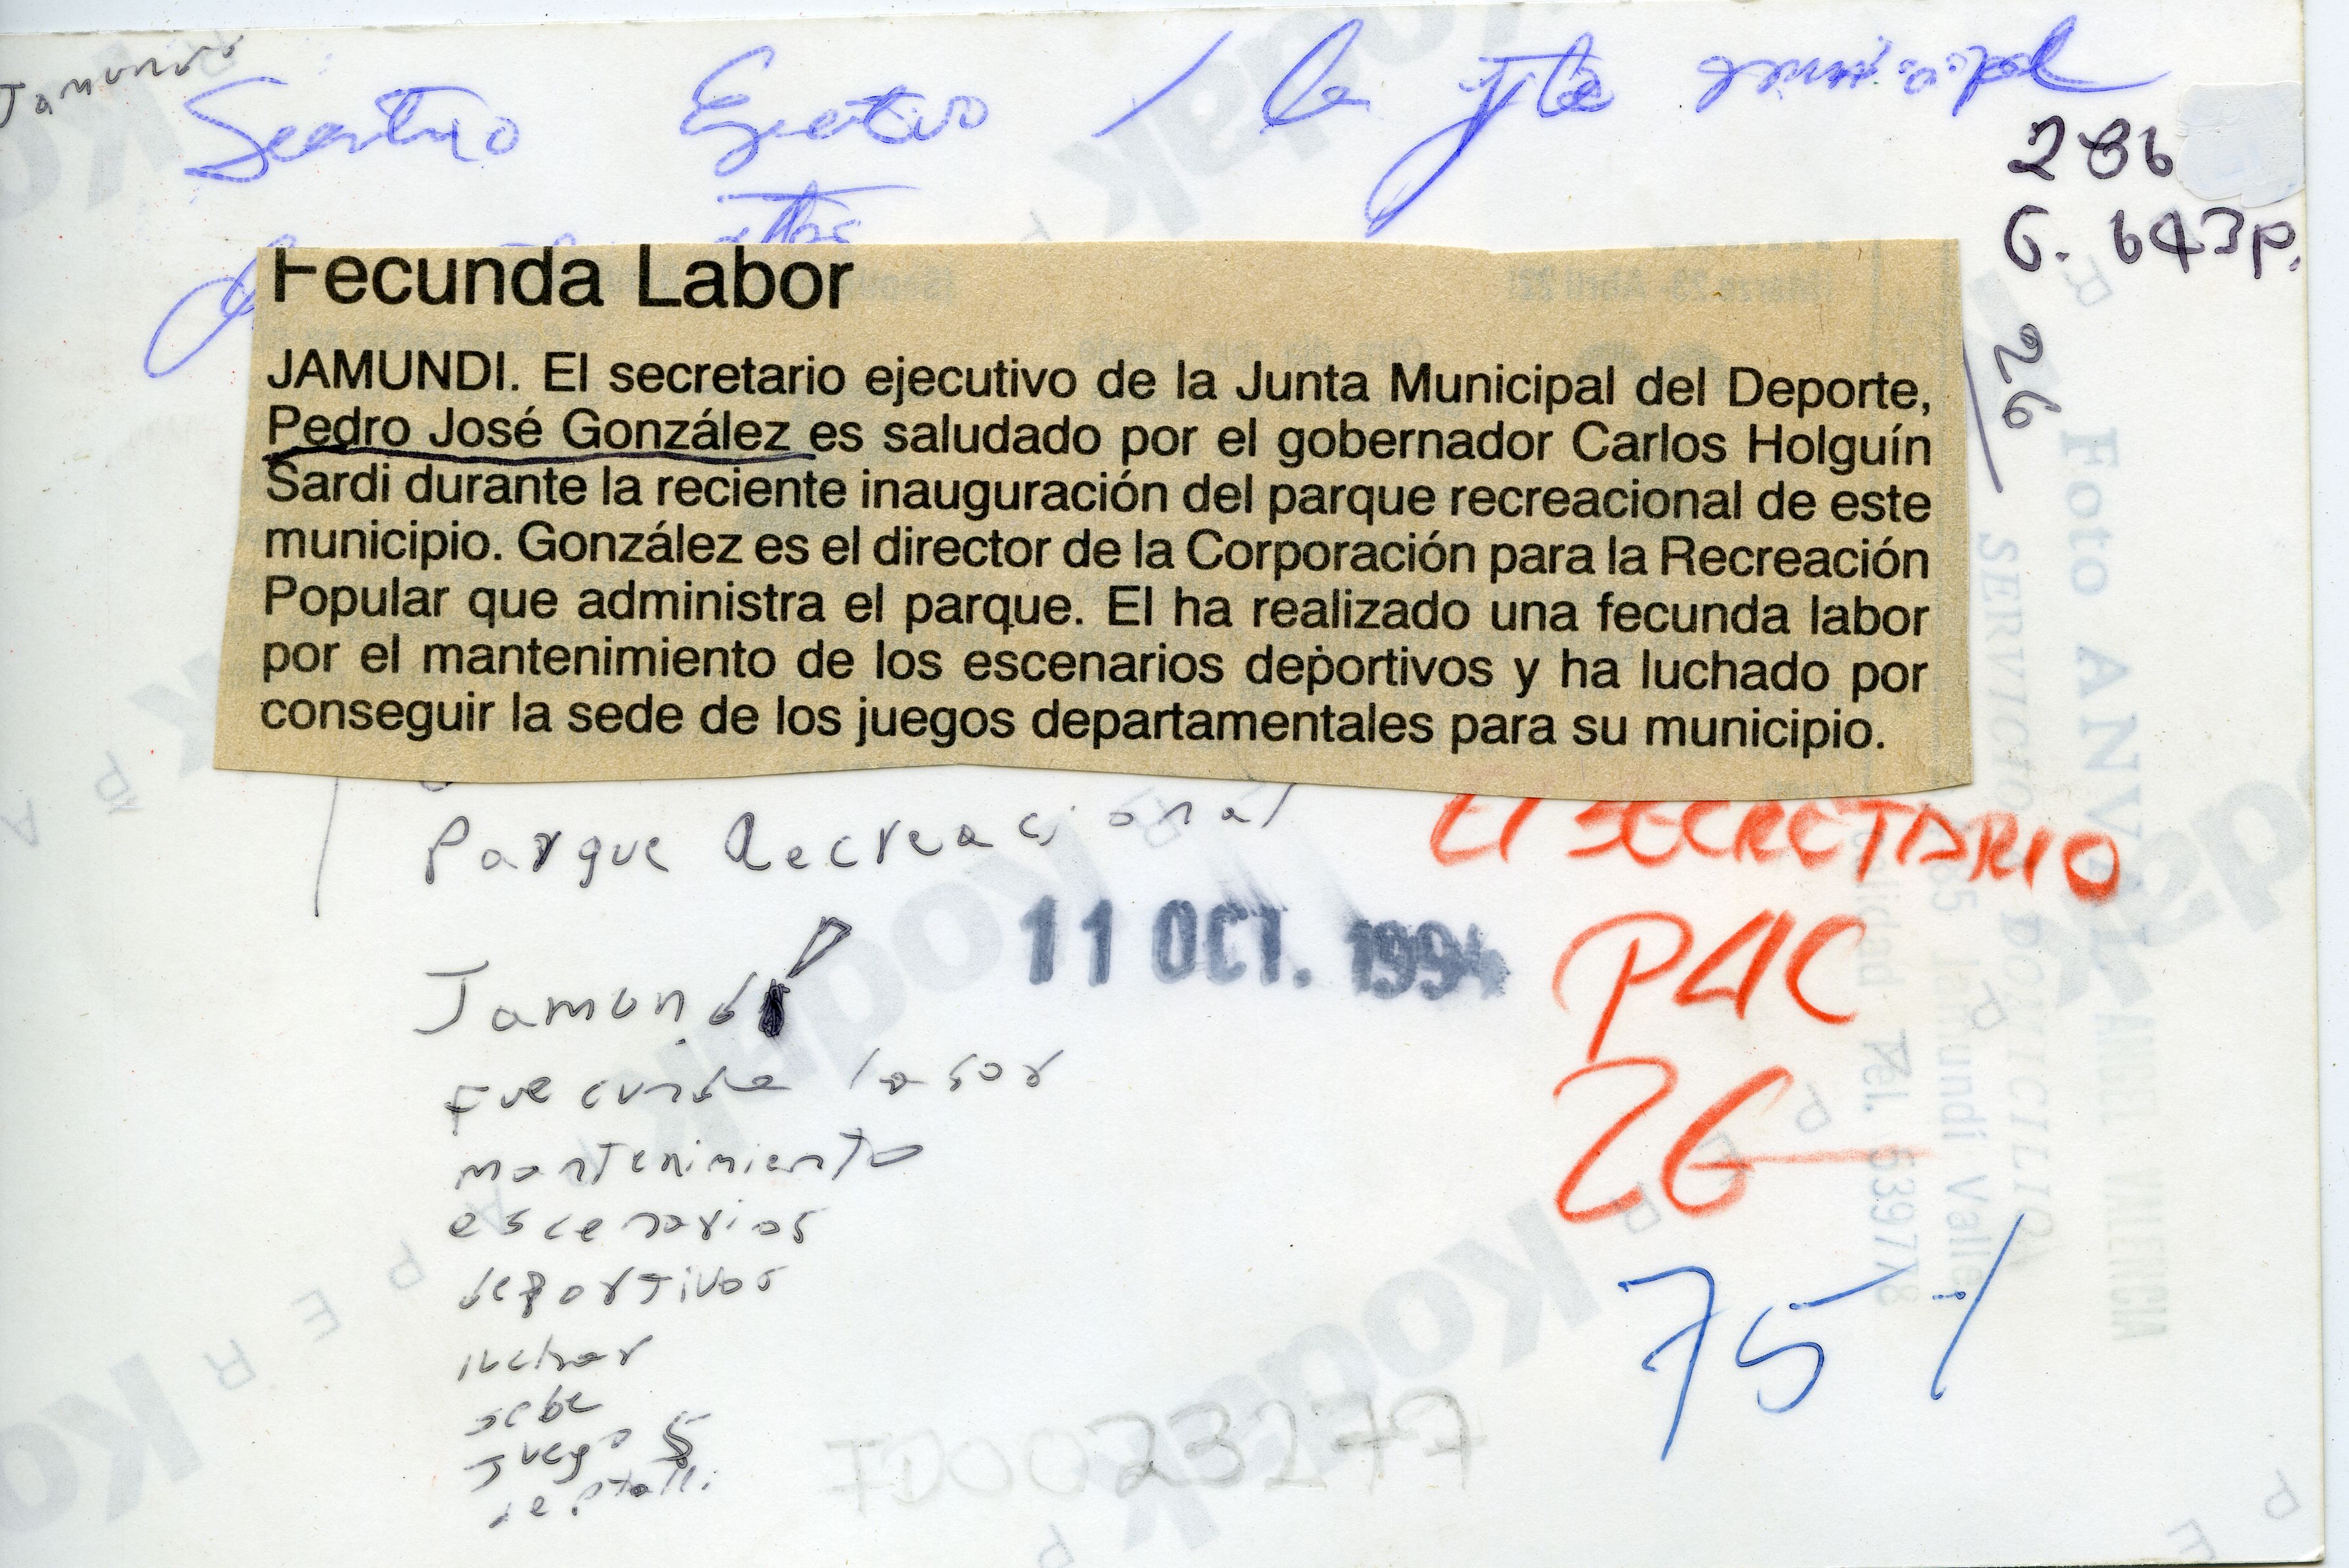 Jamundí
Secretario Ejecutivo / la Jta municipal
286
G. 643p.
26
Fecunda Labor
JAMUNDI. El secretario ejecutivo de la Junta Municipal del Deporte,
Pedro José González es saludado por el gobernador Carlos Holguín
Sardi durante la reciente inauguración del parque recreacional de este
municipio. González es el director de la Corporación para la Recreación
Popular que administra el parque. El ha realizado una fecunda labor
por el mantenimiento de los escenarios deportivos y ha luchado por
conseguir la sede de los juegos departamentales para su municipio.
Parque Recreacional
El SECRETARIO
11 OCT. 1994
P4C
26
Jamundí
Fuecunda labor
mantenimiento
escenarios
deportivos
luchar
sede
Juegos
75%
FD0023277
Foto ANVAL
ANGEL VALENCIA
SERVICIO A DOMICILIO
Jamundí Valle
Tel. 539778
Kodak
PAPER